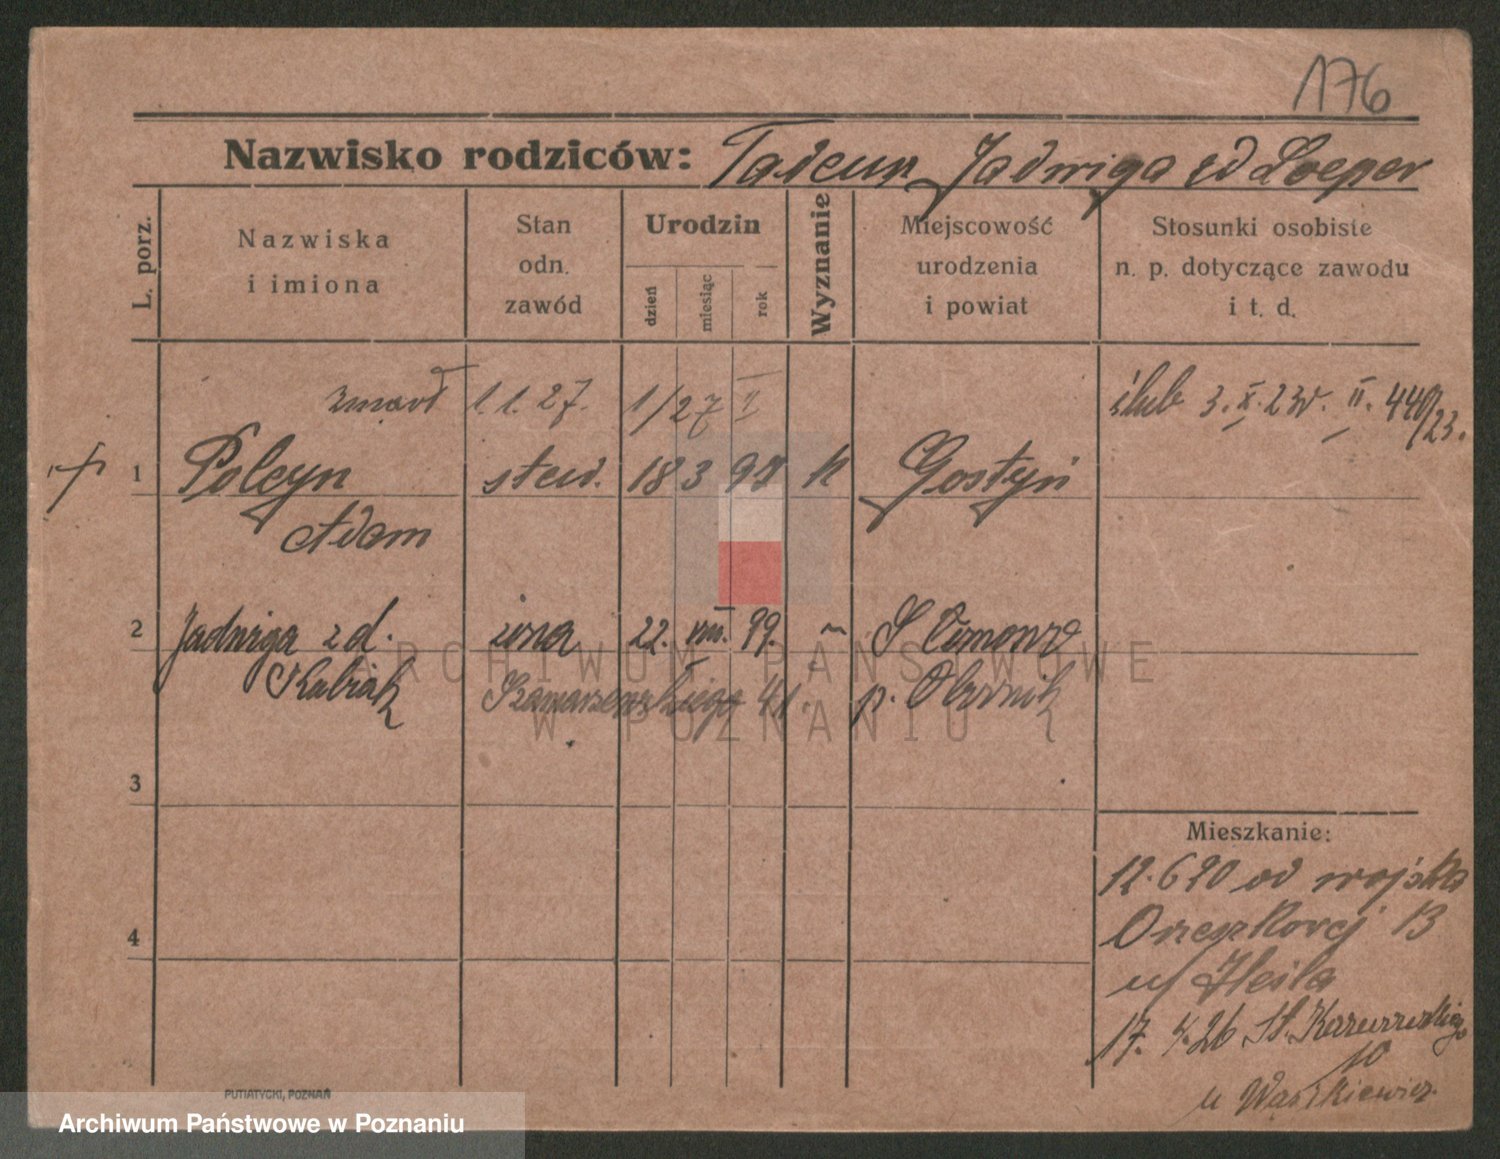 176
Nazwisko rodziców: Tadeusz Jadwiga zd Loeper
L. porz.
Nazwiska
i imiona
Stan
odn.
zawód
Urodzin
dzień
miesiąc
rok
Wyznanie
Miejscowość
urodzenia
i powiat
Stosunki osobiste
n. p. dotyczące zawodu
i t. d.
zmarł 1.1.27. 1/27 II
ślub 3.X.23r. II. 440/23.
1 Polcyn stud. 18 3 98 k Gostyń
Adam
2 Jadwiga z d. żona 22. VIII. 99. ~
Kubiak 41. p. Obornik
3
4
Mieszkanie:
12.6 20 od wojska
Orzeszkowej 13
u/ Heila
17. 4. 26 10
u Waśkiewicz
PUTIATYCKI, POZNAŃ
ARCHIWUM PAŃSTWOWE
W POZNANIU
Archiwum Państwowe w Poznaniu